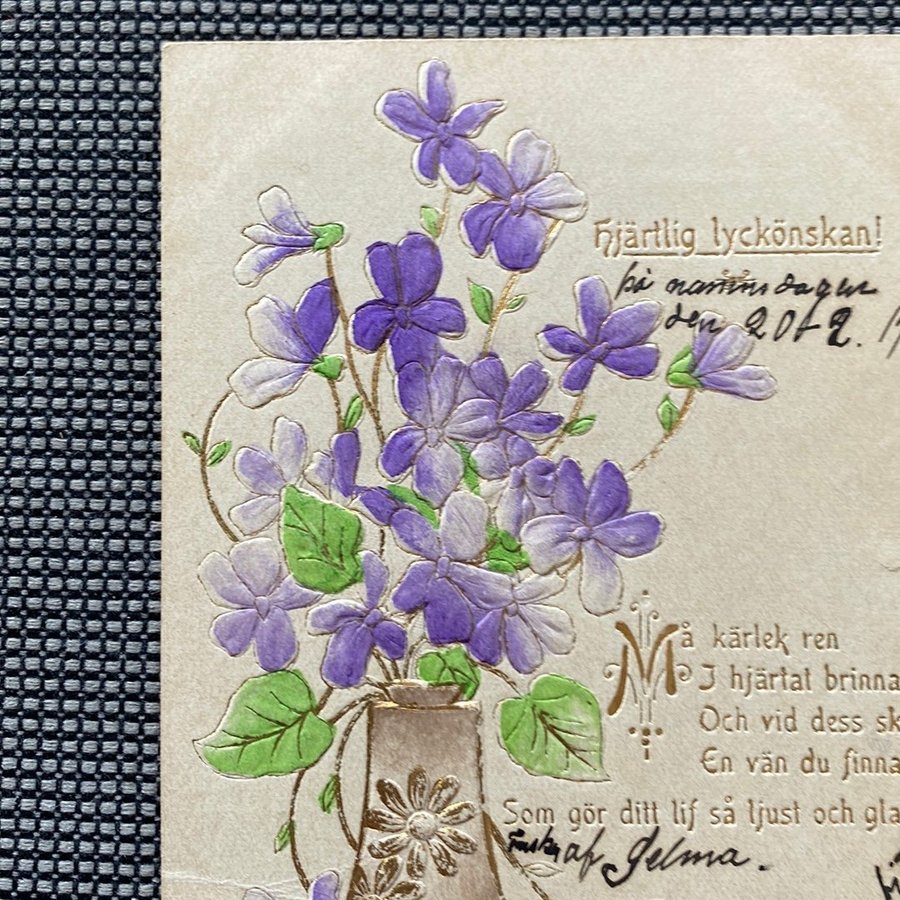 Hjärtlig lyckönskan!
på namnsdagen
den 20 t 2.
Må kärlek ren
I hjärtat brinna
Och vid dess sk
En vän du finna
Som gör ditt lif så ljust och gla
af Selma.